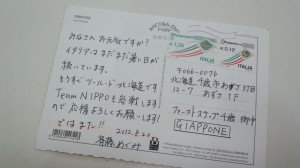 みなさんお元気ですか?
イタリアはまだまだ暑い日が
続いています。
もうすぐツール・ド・北海道です
Team NIPPOも参戦します
ので応援よろしくお願いします!
ではまた!!
2012.8.20
€1,50
€0,10
ITALIA
ITALIA
〒066-0076
北海道千歳市あずさ3丁目
12-7
1F
ファーストステップ千歳 御中
GIAPPONE